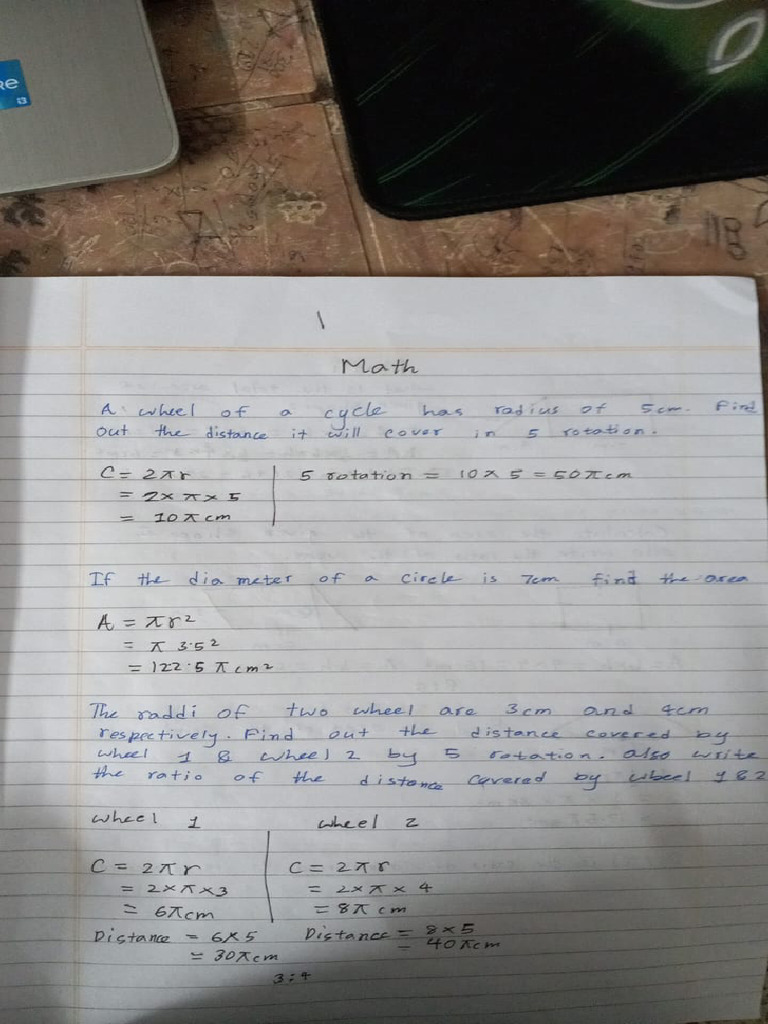 i3
1
Math
A wheel of a cycle has radius of 5cm. Find
out the distance it will cover in 5 rotation.
C = 2πr
= 2×π×5
= 10π cm
5 rotation = 10×5 = 50πcm
If the diameter of a circle is 7cm find the area
A = πr²
= π 3.5²
= 122.5 π cm²
The raddi of two wheel are 3cm and 4cm
respectively. Find out the distance covered by
wheel 1 & wheel 2 by 5 rotation. also write
the ratio of the distance covered by wheel 1 & 2
wheel 1
wheel 2
C = 2πr
= 2×π×3
= 6πcm
Distance = 6×5
= 30πcm
C = 2πr
= 2×π×4
= 8π cm
Distance = 8×5
= 40πcm
3:4